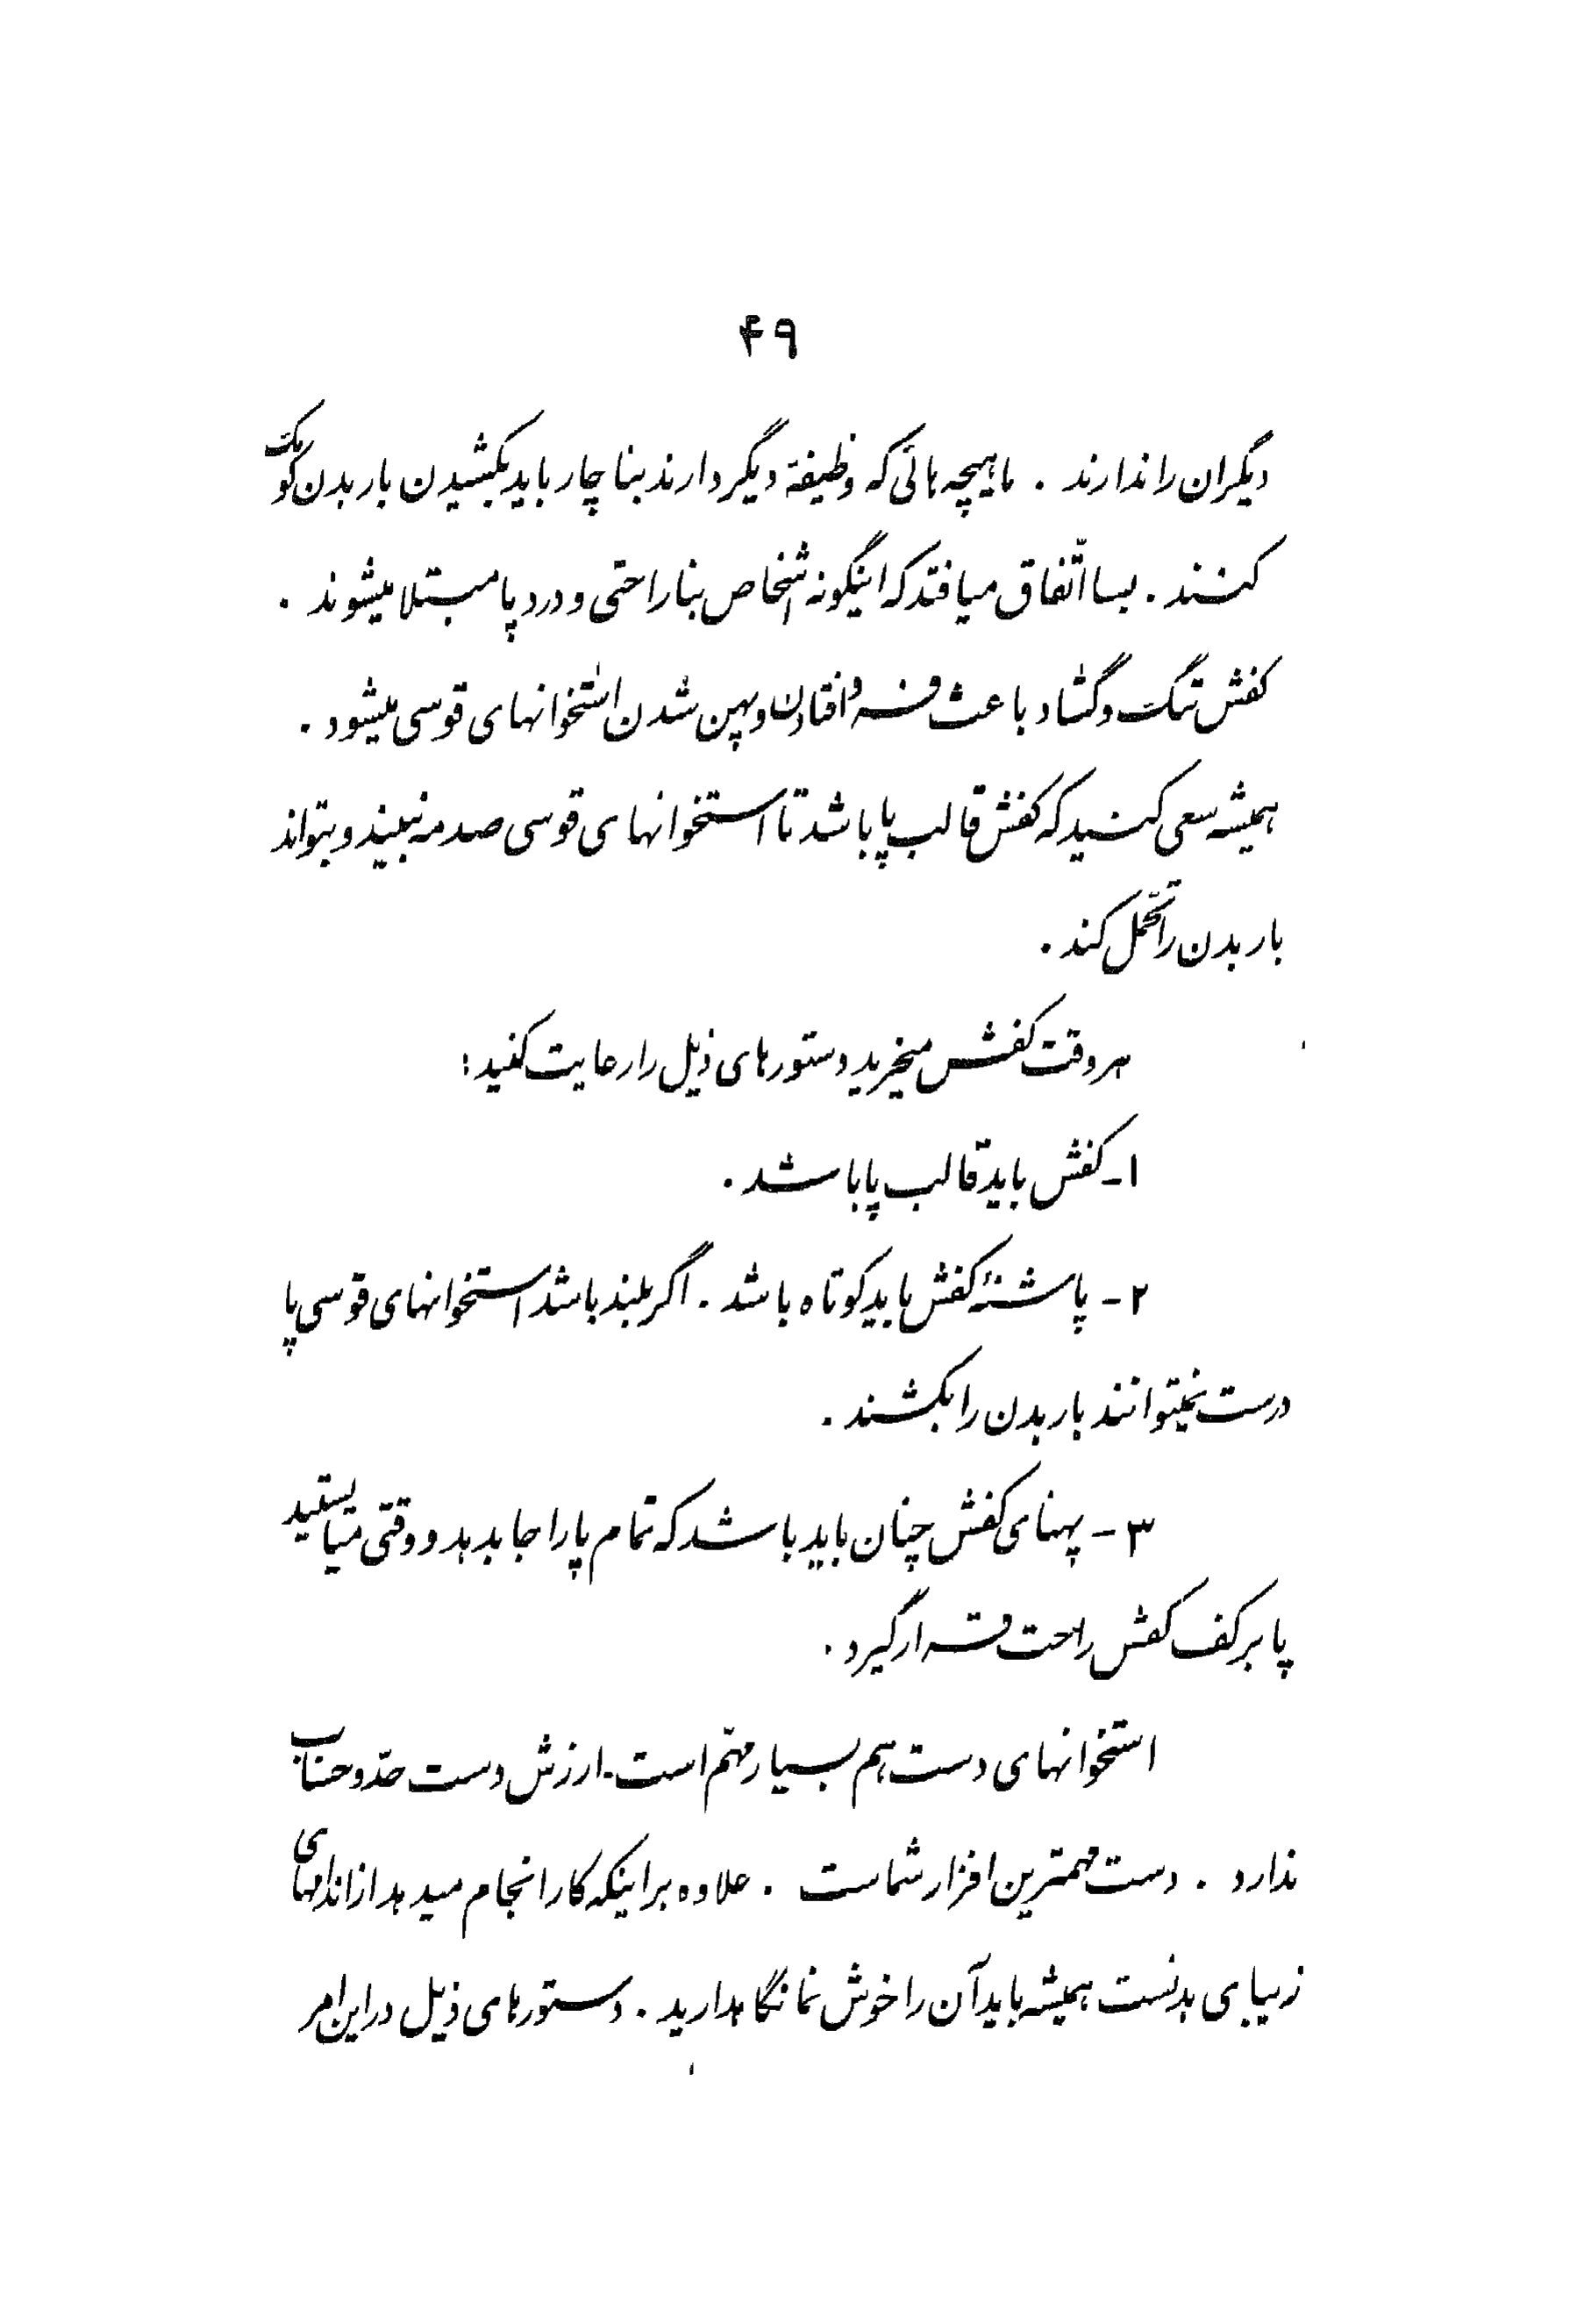 ۴۹
دیگران را ندارند . ماهیچه هائی که وظیفهٔ دیگر دارند بناچار باید بکشیدن بار بدن کمک
کنند . بسا اتّفاق میافتد که اینگونه اشخاص بناراحتی و درد پا مبتلا میشوند .
کفش تنگ و گشاد باعث فرو افتادن و پهن شدن استخوانهای قوسی میشود .
همیشه سعی کنید که کفش قالب پا باشد تا استخوانهای قوسی صدمه نبیند و بتواند
بار بدن را تحمّل کند .
هر وقت کفش میخرید دستورهای ذیل را رعایت کنید :
۱ـ کفش باید قالب پا باشد .
۲ - پاشنهٔ کفش باید کوتاه باشد . اگر بلند باشد استخوانهای قوسی پا
درست نمیتوانند بار بدن را بکشند .
۳ - پهنای کفش چنان باید باشد که تمام پا را جا بدهد و وقتی میایستید
پا بر کف کفش راحت قرار گیرد .
استخوانهای دست هم بسیار مهمّ است . ارزش دست حدّ و حساب
ندارد . دست مهمترین افزار شماست . علاوه بر اینکه کار انجام میدهد از اندامهای
زیبای بدنست همیشه باید آن را خوش نما نگاهدارید . دستورهای ذیل در این امر